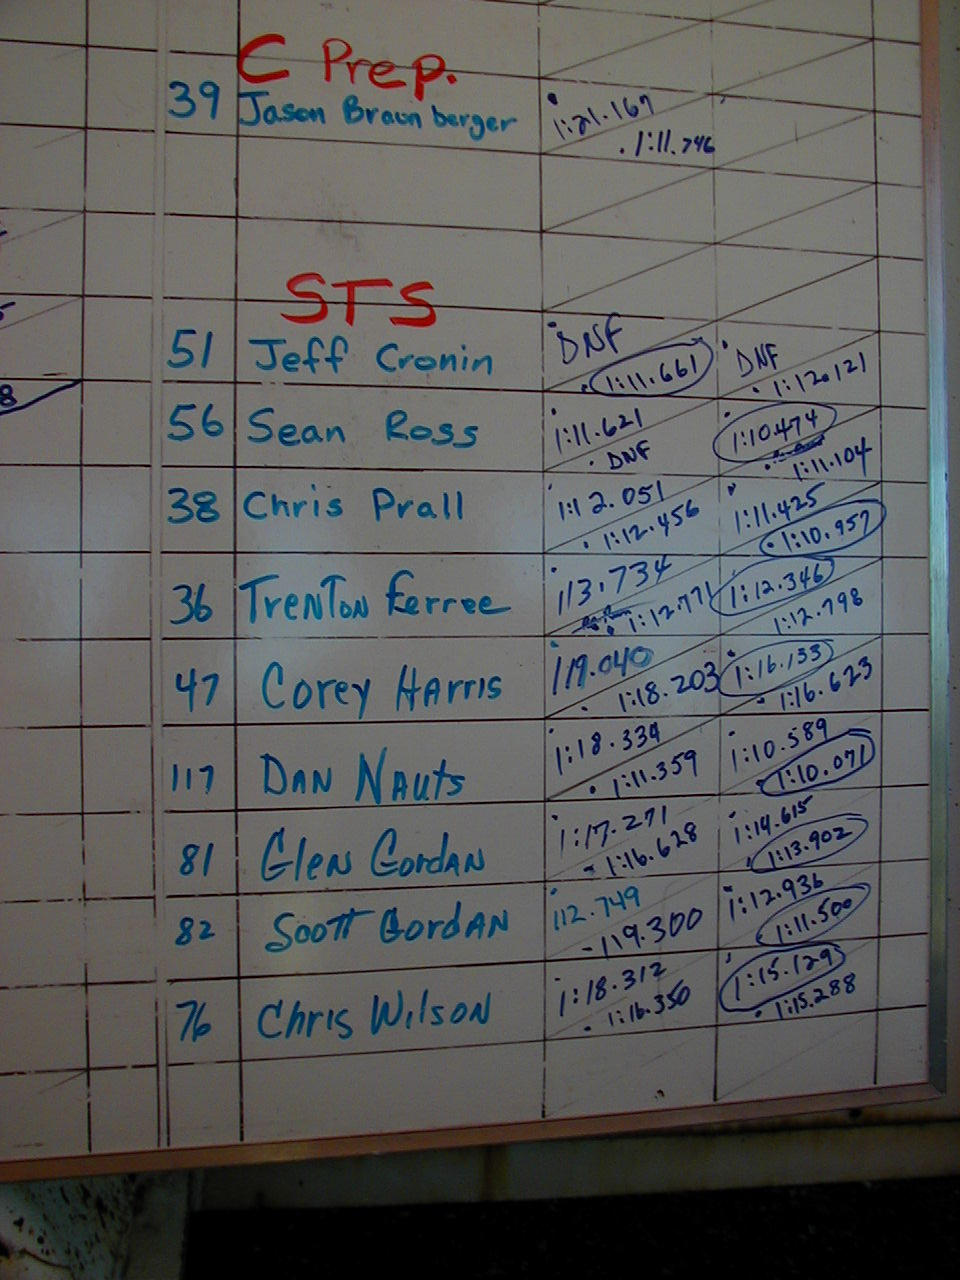 C Prep.
39 Jason Braunberger 1:21.167
1:11.746
STS
51 Jeff Cronin DNF DNF
1:11.661 1:12.121
56 Sean Ross 1:11.621 1:10.474
DNF 1:11.104
38 Chris Prall 1:12.051 1:11.425
1:12.456 1:10.957
36 Trenton Ferree 113.734 1:12.346
1:12.771 1:12.798
47 Corey Harris 119.040 1:16.133
1:18.203 1:16.623
117 Dan Nauts 1:18.334 1:10.589
1:11.359 1:10.071
81 Glen Gordan 1:17.271 1:14.615
1:16.628 1:13.902
82 Scott Gordan 112.749 1:12.936
119.300 1:11.500
76 Chris Wilson 1:18.312 1:15.129
1:16.350 1:15.288
8